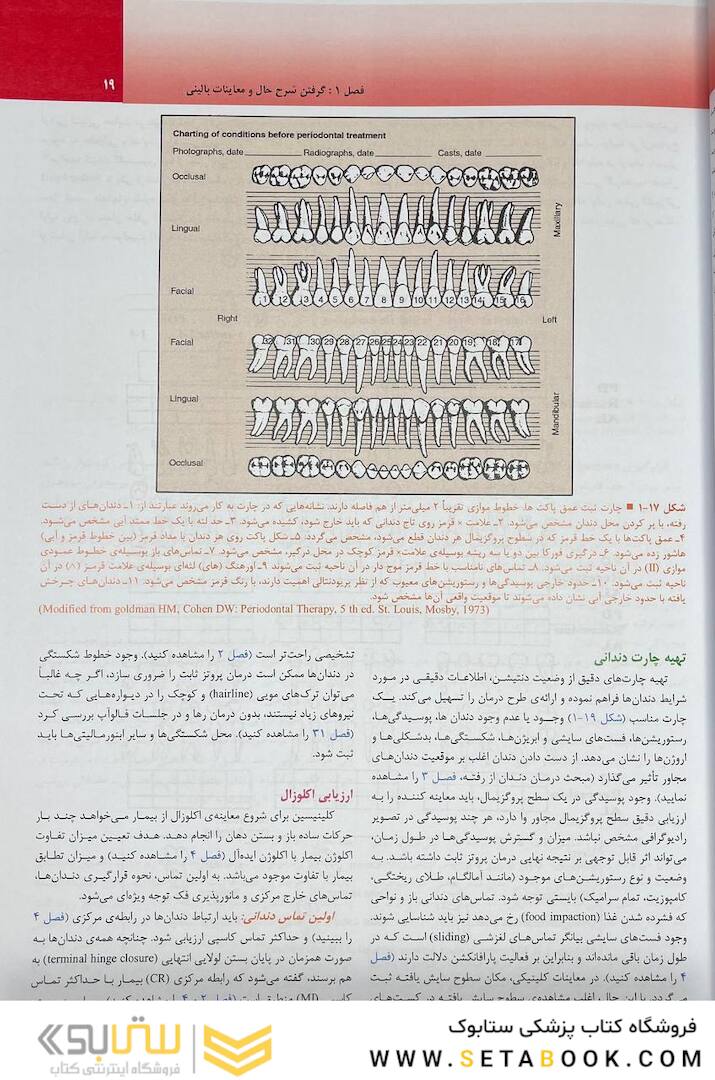 ۱۹
فصل ۱ : گرفتن شرح حال و معاینات بالینی
Charting of conditions before periodontal treatment
Photographs, date Radiographs, date Casts, date
Occlusal
Lingual
Maxillary
Facial
1 2 3 4 5 6 7 8 9 10 11 12 13 14 15 16
Right Left
Facial
32 31 30 29 28 27 26 25 24 23 22 21 20 19 18 17
Lingual
Mandibular
Occlusal
شکل ۱۷-۱ ■ چارت ثبت عمق پاکت ها. خطوط موازی تقریباً ۲ میلی‌متر از هم فاصله دارند. نشانه‌هایی که در چارت به کار می‌روند عبارتند از: ۱ـ دندان‌های از دست
رفته، با پر کردن محل دندان مشخص می‌شود. ۲ـ علامت × قرمز روی تاج دندانی که باید خارج شود، کشیده می‌شود. ۳ـ حد لثه با یک خط ممتد آبی مشخص می‌شود.
۴ـ عمق پاکت‌ها با یک خط قرمز که در سطوح پروگزیمال هر دندان قطع می‌شود، مشخص می‌گردد. ۵ـ شکل پاکت روی هر دندان با مداد قرمز (بین خطوط قرمز و آبی)
هاشور زده می‌شود. ۶ـ درگیری فورکا بین دو یا سه ریشه بوسیله‌ی علامت× قرمز کوچک در محل درگیر، مشخص می‌شود. ۷ـ تماس‌های باز بوسیله‌ی خطوط عمودی
موازی (II) در آن ناحیه ثبت می‌شود. ۸ـ تماس‌های نامناسب با خط قرمز موج دار در آن ناحیه ثبت می‌شوند ۹ـ آورهنگ (های) لثه‌ای بوسیله‌ی علامت قرمز (۸) در آن
ناحیه ثبت می‌شود. ۱۰ـ حدود خارجی پوسیدگی‌ها و رستوریشن‌های معیوب که از نظر پریودنتالی اهمیت دارند، با رنگ قرمز مشخص می‌شود. ۱۱ـ دندان‌های چرخش
یافته با حدود خارجی آبی نشان داده می‌شوند تا موقعیت واقعی آن‌ها مشخص شود.
(Modified from goldman HM, Cohen DW: Periodontal Therapy, 5 th ed. St. Louis, Mosby, 1973)
تهیه چارت دندانی
تهیه چارت‌های دقیق از وضعیت دنتیشن، اطلاعات دقیقی در مورد
شرایط دندان‌ها فراهم نموده و ارائه‌ی طرح درمان را تسهیل می‌کند. یک
چارت مناسب (شکل ۱۹-۱) وجود یا عدم وجود دندان ها، پوسیدگی‌ها،
رستوریشن‌ها، فست‌های سایشی و ابریژن‌ها، شکستگی‌ها، بدشکلی‌ها و
اروژن‌ها را نشان می‌دهد. از دست دادن دندان اغلب بر موقعیت دندان‌های
مجاور تأثیر می‌گذارد (مبحث درمان دندان از رفته، فصل ۳ را مشاهده
نمایید). وجود پوسیدگی در یک سطح پروگزیمال، باید معاینه کننده را به
ارزیابی دقیق سطح پروگزیمال مجاور وا دارد، هر چند پوسیدگی در تصویر
رادیوگرافی مشخص نباشد. میزان و گسترش پوسیدگی‌ها در طول زمان،
می‌تواند اثر قابل توجهی بر نتیجه نهایی درمان پروتز ثابت داشته باشد. به
وضعیت و نوع رستوریشن‌های موجود (مانند آمالگام، طلای ریختگی،
کامپوزیت، تمام سرامیک) بایستی توجه شود. تماس‌های دندانی باز و نواحی
که فشرده شدن غذا (food impaction) رخ می‌دهد نیز باید شناسایی شوند.
وجود فست‌های سایشی بیانگر تماس‌های لغزشی (sliding) است که در
طول زمان باقی مانده‌اند و بنابراین بر فعالیت پارافانکشن دلالت دارند (فصل
۴ را مشاهده کنید). در معاینات کلینیکی، مکان سطوح سایش یافته ثبت
می‌گردد. با این حال، اغلب مشاهده‌ی سطوح سایش یافته در کست‌های
تشخیصی راحت‌تر است (فصل ۲ را مشاهده کنید). وجود خطوط شکستگی
در دندان‌ها ممکن است درمان پروتز ثابت را ضروری سازد، اگر چه غالباً
می‌توان ترک‌های مویی (hairline) و کوچک را در دیواره‌هایی که تحت
نیروهای زیاد نیستند، بدون درمان رها و در جلسات فالوآپ بررسی کرد
(فصل ۳۱ را مشاهده کنید). محل شکستگی‌ها و سایر ابنورمالیتی‌ها باید
ثبت شود.
ارزیابی اکلوزال
کلینیسین برای شروع معاینه‌ی اکلوزال از بیمار می‌خواهد چند بار
حرکات ساده باز و بستن دهان را انجام دهد. هدف تعیین میزان تفاوت
اکلوژن بیمار با اکلوژن ایده‌آل (فصل ۴ را مشاهده کنید) و میزان تطابق
بیمار با تفاوت موجود می‌باشد. به اولین تماس، نحوه قرارگیری دندان‌ها،
تماس‌های خارج مرکزی و مانورپذیری فک توجه ویژه‌ای می‌شود.
اولین تماس دندانی: باید ارتباط دندان‌ها در رابطه‌ی مرکزی (فصل ۴
را ببینید) و حداکثر تماس کاسپی ارزیابی شود. چنانچه همه‌ی دندان‌ها به
صورت همزمان در پایان بستن لولایی انتهایی (terminal hinge closure) به
هم برسند، گفته می‌شود که رابطه مرکزی (CR) بیمار با حداکثر تماس
فروشگاه کتاب پزشکی ستابوک
WWW.SETABOOK.COM
ستابوک
فروشگاه اینترنتی کتاب